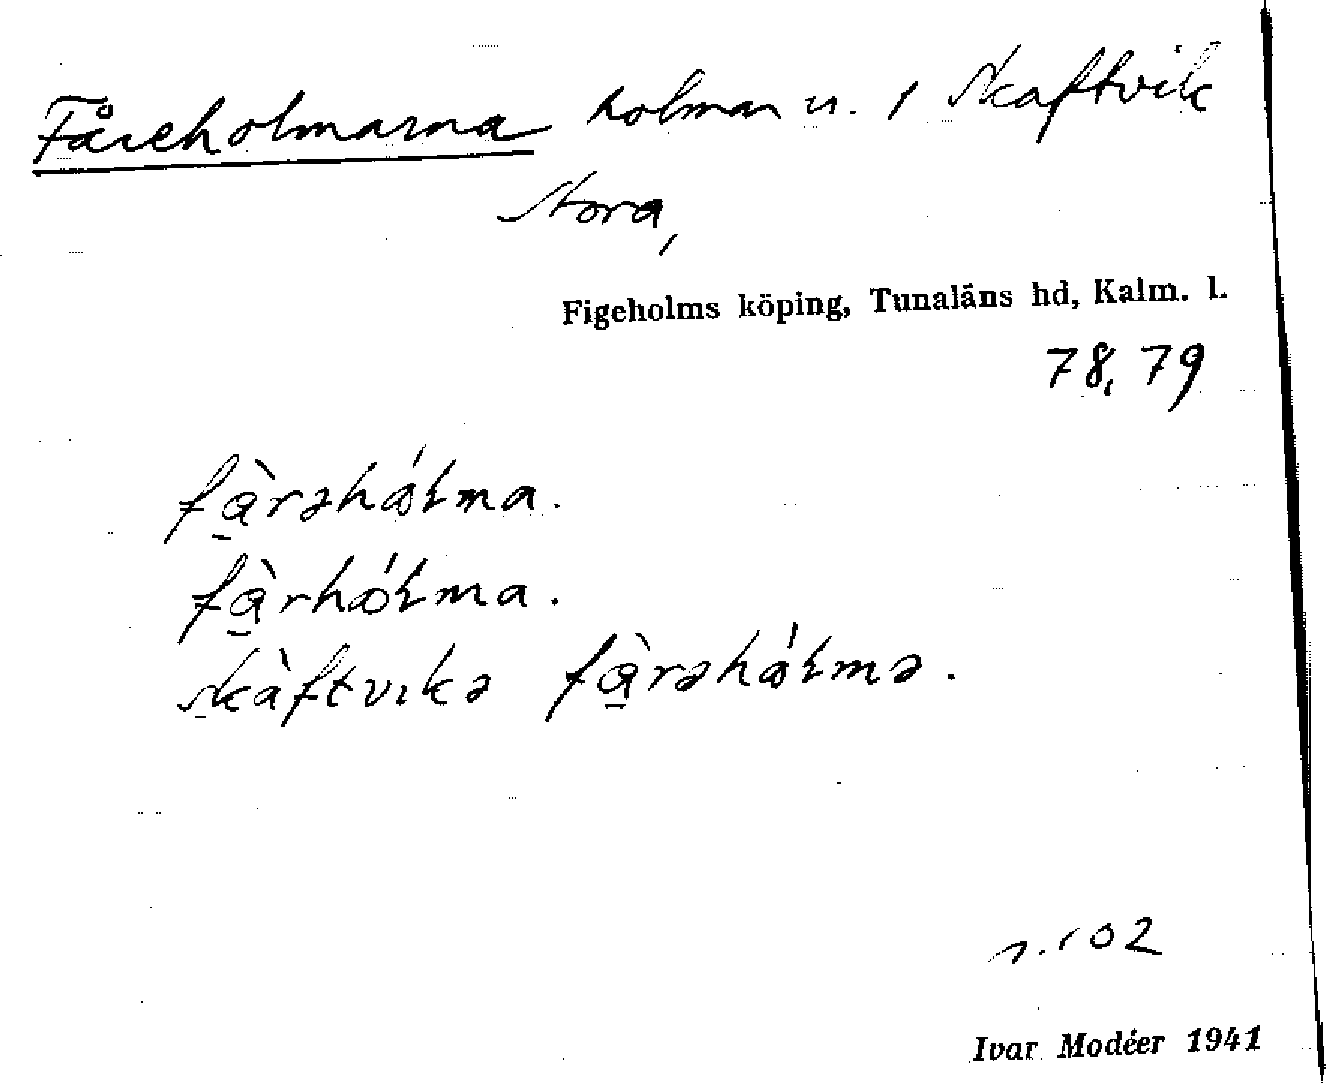 Fåreholmarna holmar u. / Skaftvik
Stora,
Figeholms köping, Tunaläns hd, Kalm. l.
78, 79
fàrəhólma.
fàrhólma.
skàftvıkə fàrəhólmə.
s. 102
Ivar Modéer 1941